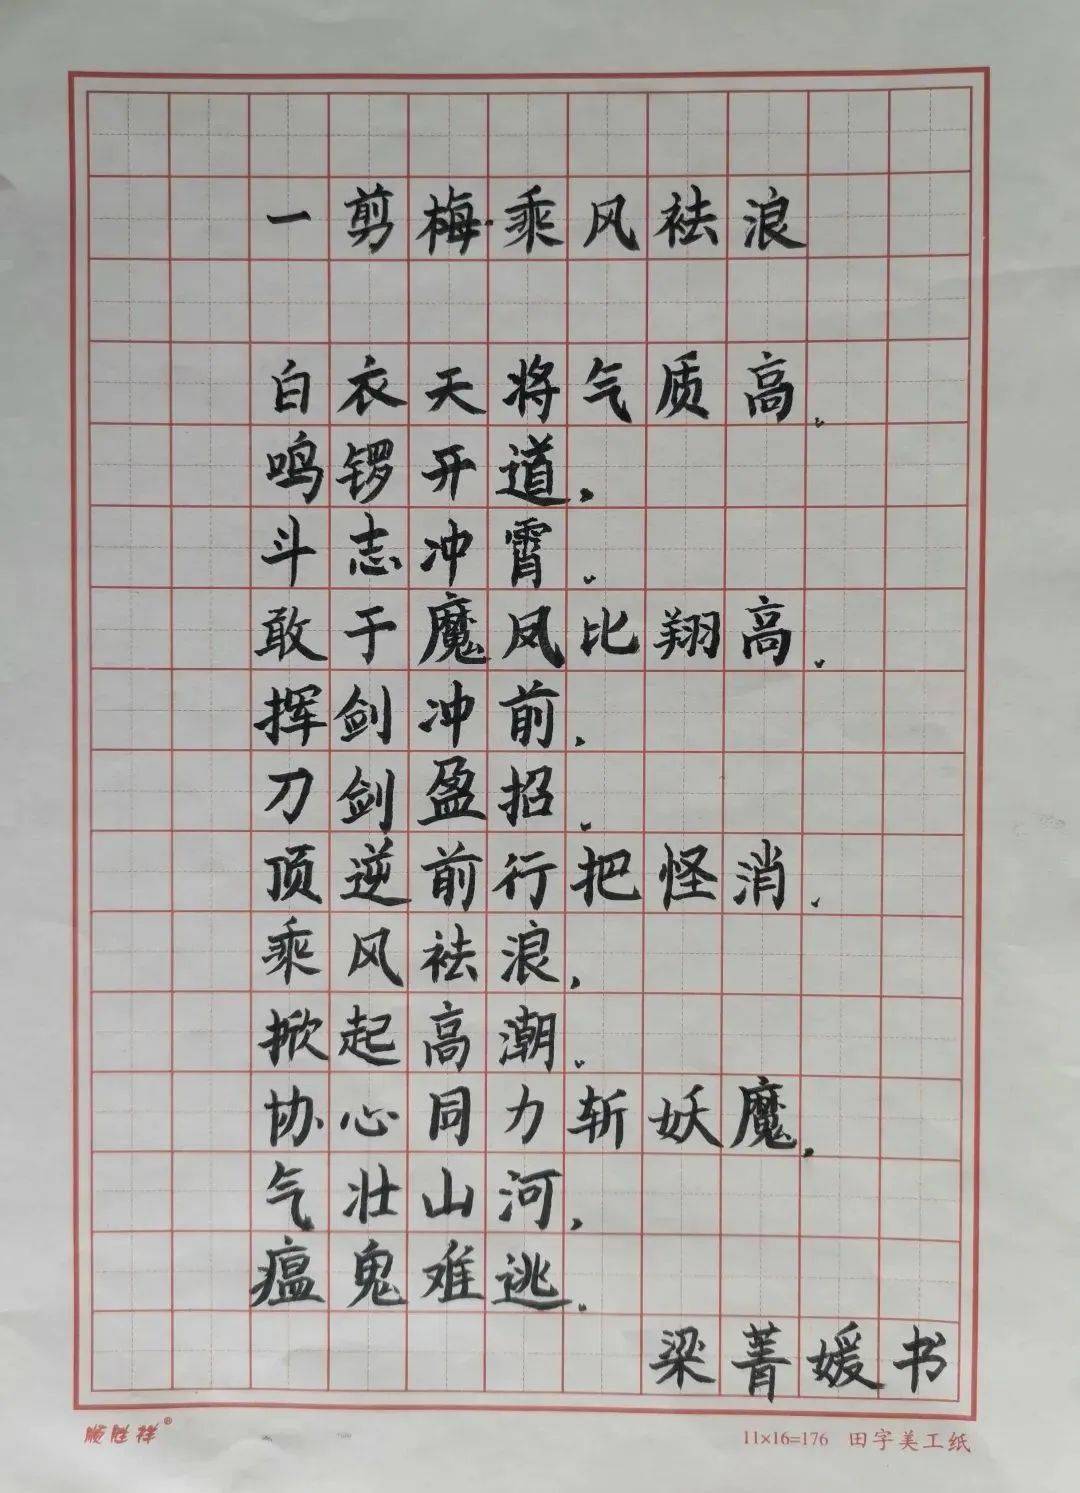 一剪梅·乘风袪浪
白衣天将气质高，
鸣锣开道，
斗志冲霄。
敢于魔凤比翔高，
挥剑冲前，
刀剑盈招。
顶逆前行把怪消，
乘风袪浪，
掀起高潮。
协心同力斩妖魔，
气壮山河，
瘟鬼难逃。
梁菁媛书
顺胜祥®
11×16=176 田字美工纸